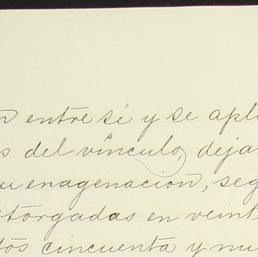 n entre sí y se apl
s del vínculo, deja
u enagenación, seg
otorgadas en veint
tos cincuenta y nu